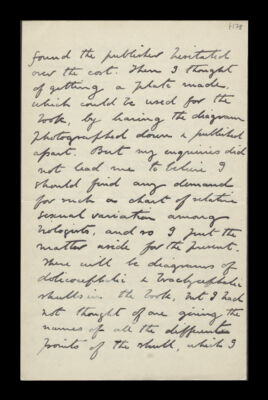 found the publisher hesitated
over the cost. Then I thought
of getting a plate made
which could be used for the
book, by having the diagram
photographed down & published
apart. But my enquiries did
not lead me to believe I
should find any demand
for such a chart of relative
sexual variation among
biologists, and so I put the
matter aside for the present.
There will be diagrams of
dolicocephalic & brachycephalic
skulls in the book, but I had
not thought of one giving the
names of all the different
points of the skull, which I